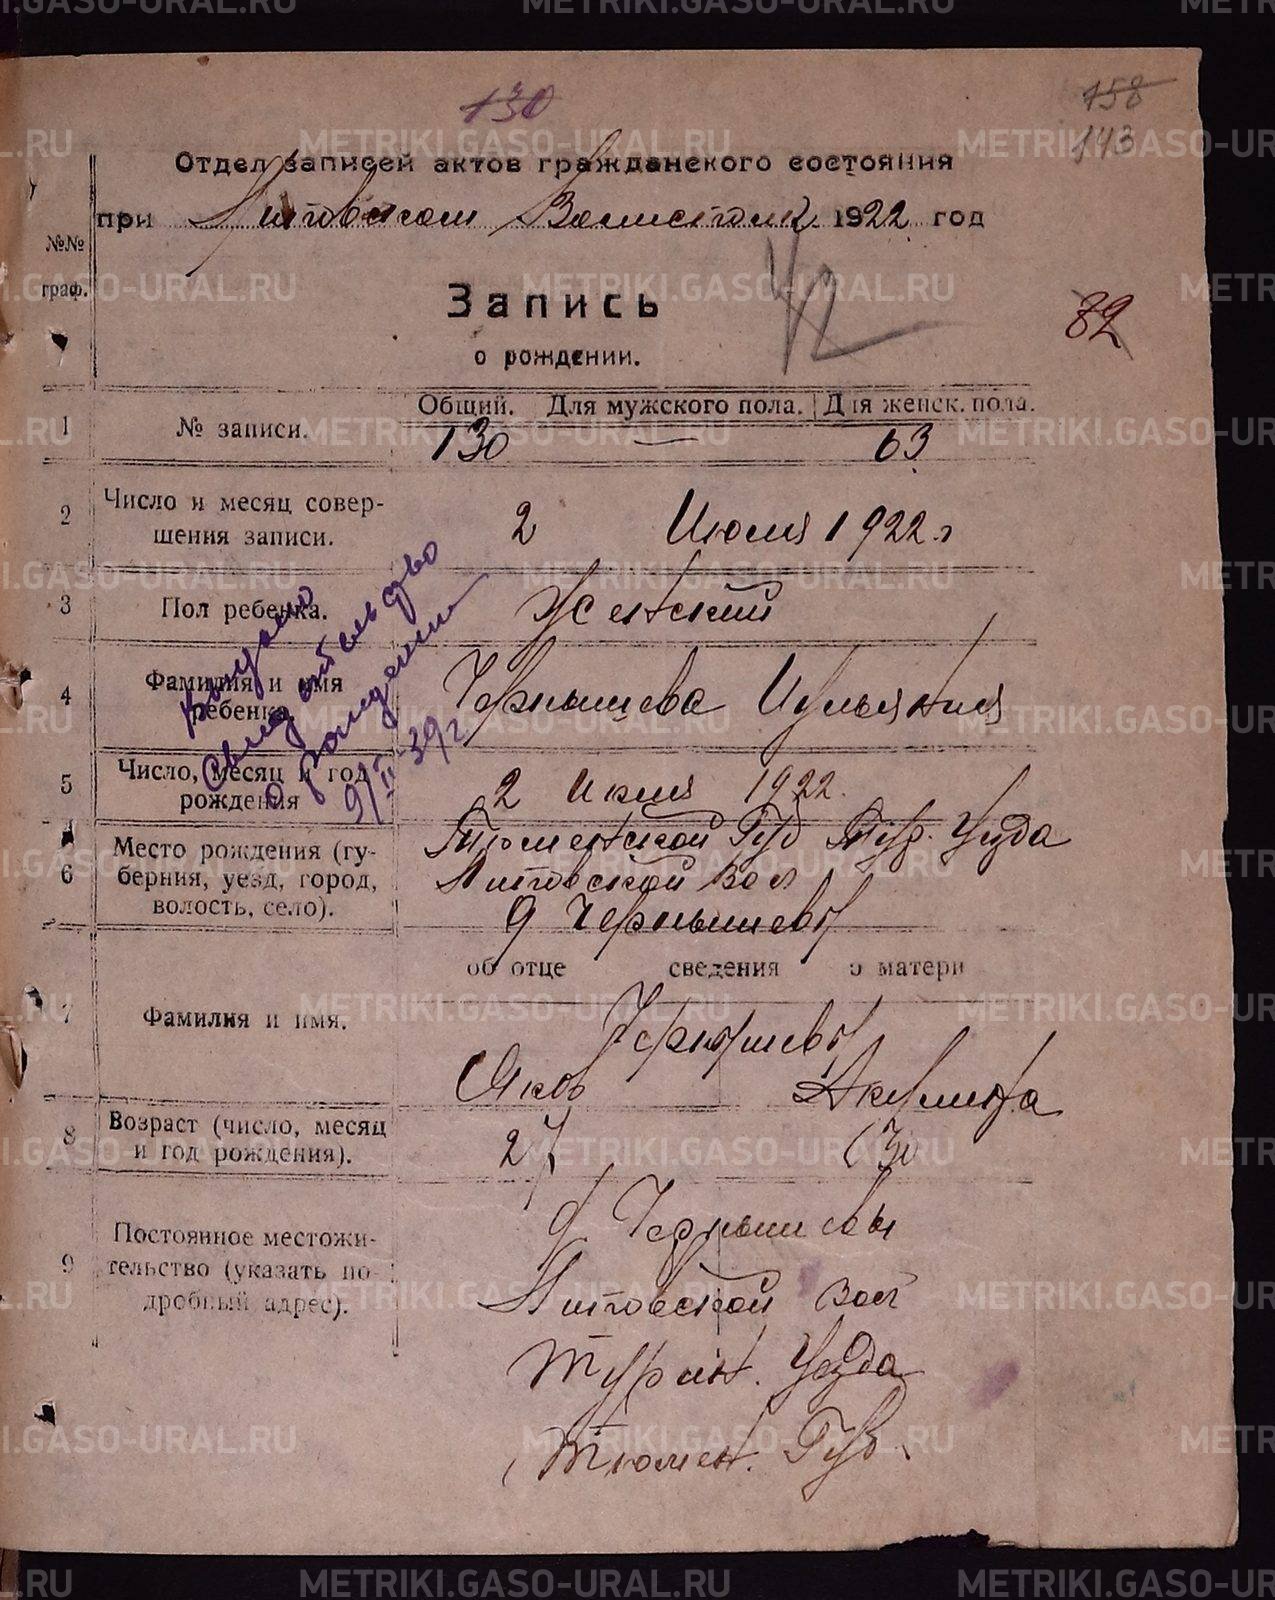 130
158
143
Отдел записей актов гражданского состояния
при Литовском Волисполк. 1922 год
№№
граф.
42
Запись
82
о рождении.
Общий. Для мужского пола. Для женск. пола.
1 № записи. 130 — 63
2 Число и месяц совер-
шения записи. 2 Июля 1922 г
3 Пол ребенка. Женский
4 Фамилия и имя
ребенка Чернышева Иульяния
5 Число, месяц и год
рождения 2 Июля 1922.
Выдано
свидетельство
о рождении
9/II-39 г
6 Место рождения (гу-
берния, уезд, город,
волость, село).
Тюменской Губ Тур. Уезда
Литовской вол
д Чернышевы
об отце сведения о матери
7 Фамилия и имя.
Чернышевы
Яков Акулина
8 Возраст (число, месяц
и год рождения). 27 30
9 Постоянное местожи-
тельство (указать по-
дробный адрес).
д Чернышевы
Литовской вол
Турин. Уезда
Тюмен. Губ.
METRIKI.GASO-URAL.RU